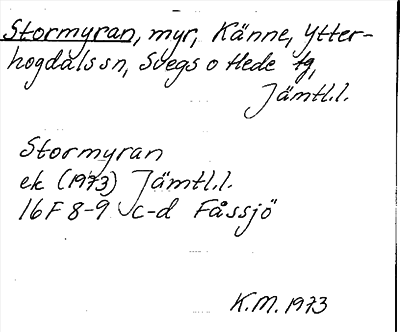 Stormyran, myr, Känne, Ytter-
hogdals sn, Svegs o Hede tg,
Jämtl.l.
Stormyran
ek (1973) Jämtl.l.
16F 8-9 c-d Fåssjö
K.M. 1973